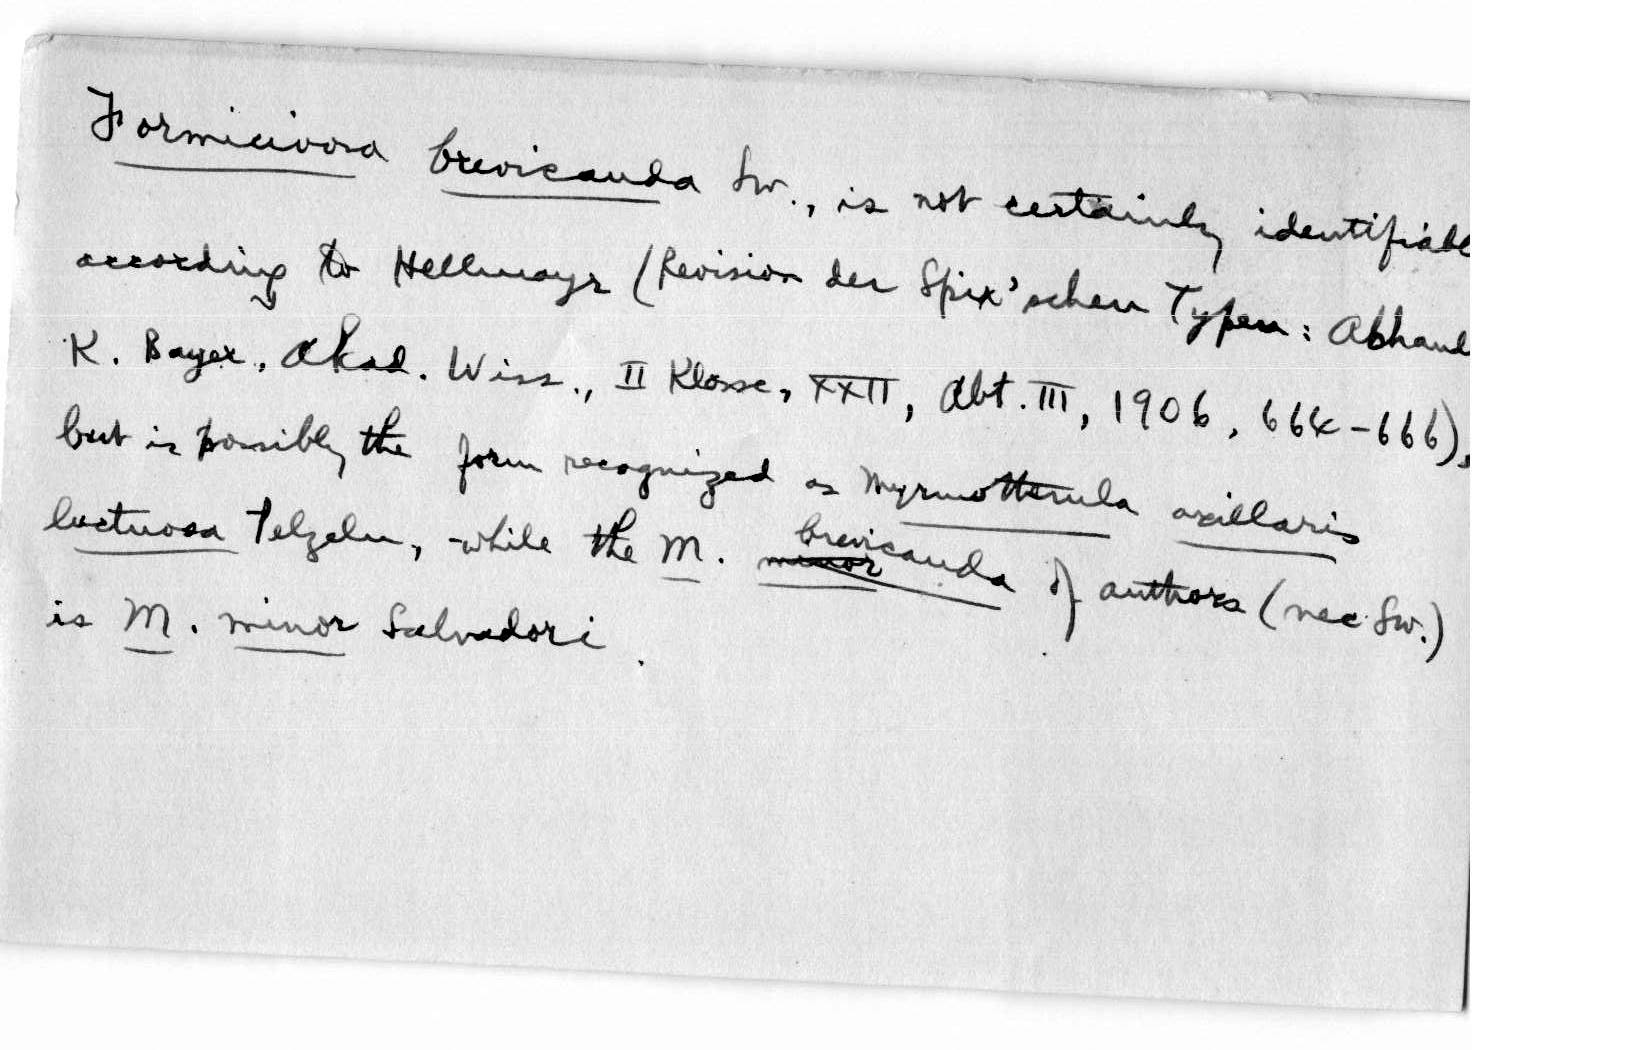 Formicivora brevicauda Sw., is not certainly identifiabl
according to Hellmayr (Revision der Spix'schen Typen: Abhandl
K. Bayer. Akad. Wiss., II Klasse, XXII, Abt. III, 1906, 664-666),
but is possibly the form recognized as Myrmotherula axillaris
luctuosa Pelzeln, while the M. minor brevicauda of authors (nec Sw.)
is M. minor Salvadori.